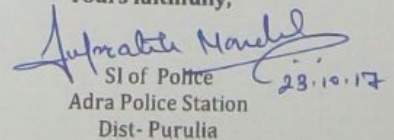 Yours faithfully,
Supratik Mondal
SI of Police
23.10.17
Adra Police Station
Dist- Purulia